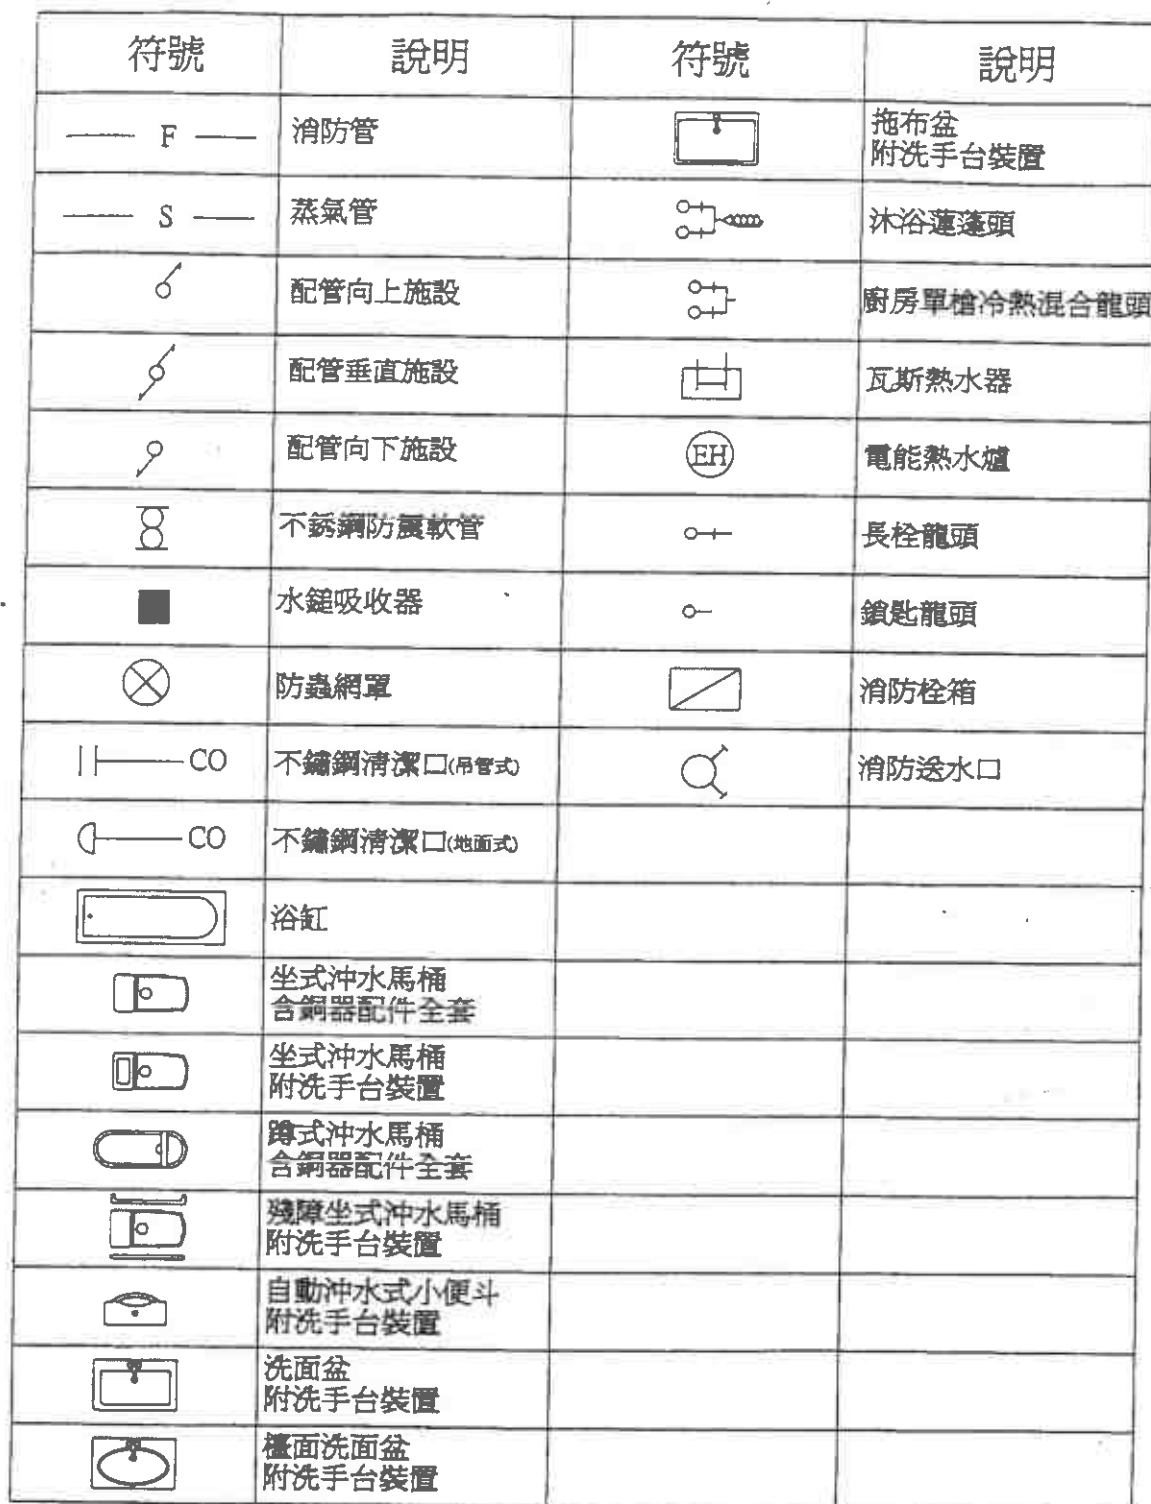 符號 說明 符號 說明
F 消防管 拖布盆
附洗手台裝置
S 蒸氣管 沐浴蓮蓬頭
配管向上施設 廚房單槍冷熱混合龍頭
配管垂直施設 瓦斯熱水器
配管向下施設 EH 電能熱水爐
不銹鋼防震軟管 長栓龍頭
水鎚吸收器 鎖匙龍頭
防蟲網罩 消防栓箱
CO 不鏽鋼清潔口(吊管式) 消防送水口
CO 不鏽鋼清潔口(地面式)
浴缸
坐式沖水馬桶
含銅器配件全套
坐式沖水馬桶
附洗手台裝置
蹲式沖水馬桶
含銅器配件全套
殘障坐式沖水馬桶
附洗手台裝置
自動沖水式小便斗
附洗手台裝置
洗面盆
附洗手台裝置
檯面洗面盆
附洗手台裝置